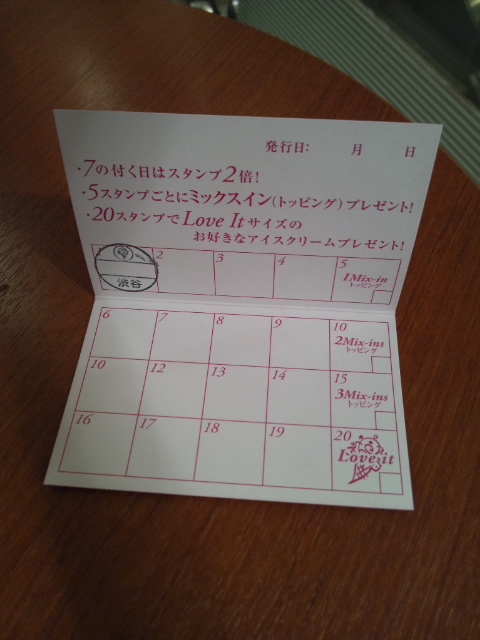 発行日: 月 日
・7の付く日はスタンプ2倍!
・5スタンプごとにミックスイン(トッピング)プレゼント!
・20スタンプでLove Itサイズの
お好きなアイスクリームプレゼント!
渋谷 2 3 4 5 1Mix-in トッピング
6 7 8 9 10 2Mix-ins トッピング
10 12 13 14 15 3Mix-ins トッピング
16 17 18 19 20 Love it